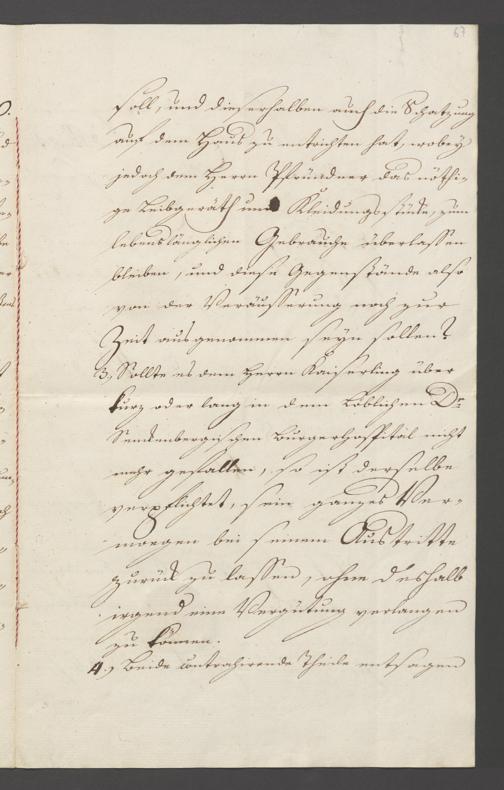 67
soll, und dieserhalben auch die Schatzung
auf dem Haus zu entrichten hat, wobey
jedoch dem Herrn Pfründner das nöthi-
ge Leibgeräth und Kleidungsstücke, zum
lebenslänglichen Gebrauche überlassen
bleiben, und diese Gegenstände also
von der Veräusserung noch zur
Zeit ausgenommen seyn sollen.
3.) Sollte es dem Herrn Kaiserling über
kurz oder lang in dem Löblichen Dr.
Senckenbergischen Bürgerhospital nicht
mehr gefallen, so ist derselbe
verpflichtet, sein ganzes Ver-
moegen bei seinem Austritte
zurück zu lassen, ohne deshalb
irgend eine Vergütung verlangen
zu können.
4.) Beide contrahirende Theile entsagen